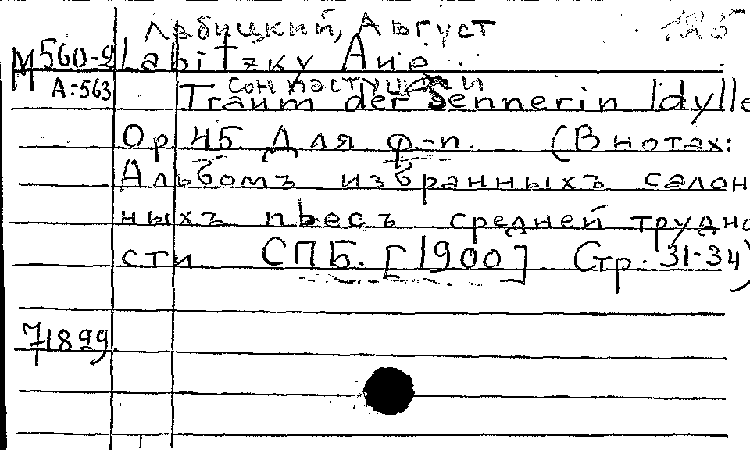 Лабицкий, Август
М560-2 Labitzky Aug.
А:563 Сон пастушки
Traum der Sennerin Idylle
Op 45 Для ф-п. (В нотах:
Альбомъ избранныхъ салон
ныхъ пьесъ средней трудно
сти СПБ. [1900] Стр. 31-34)
71899